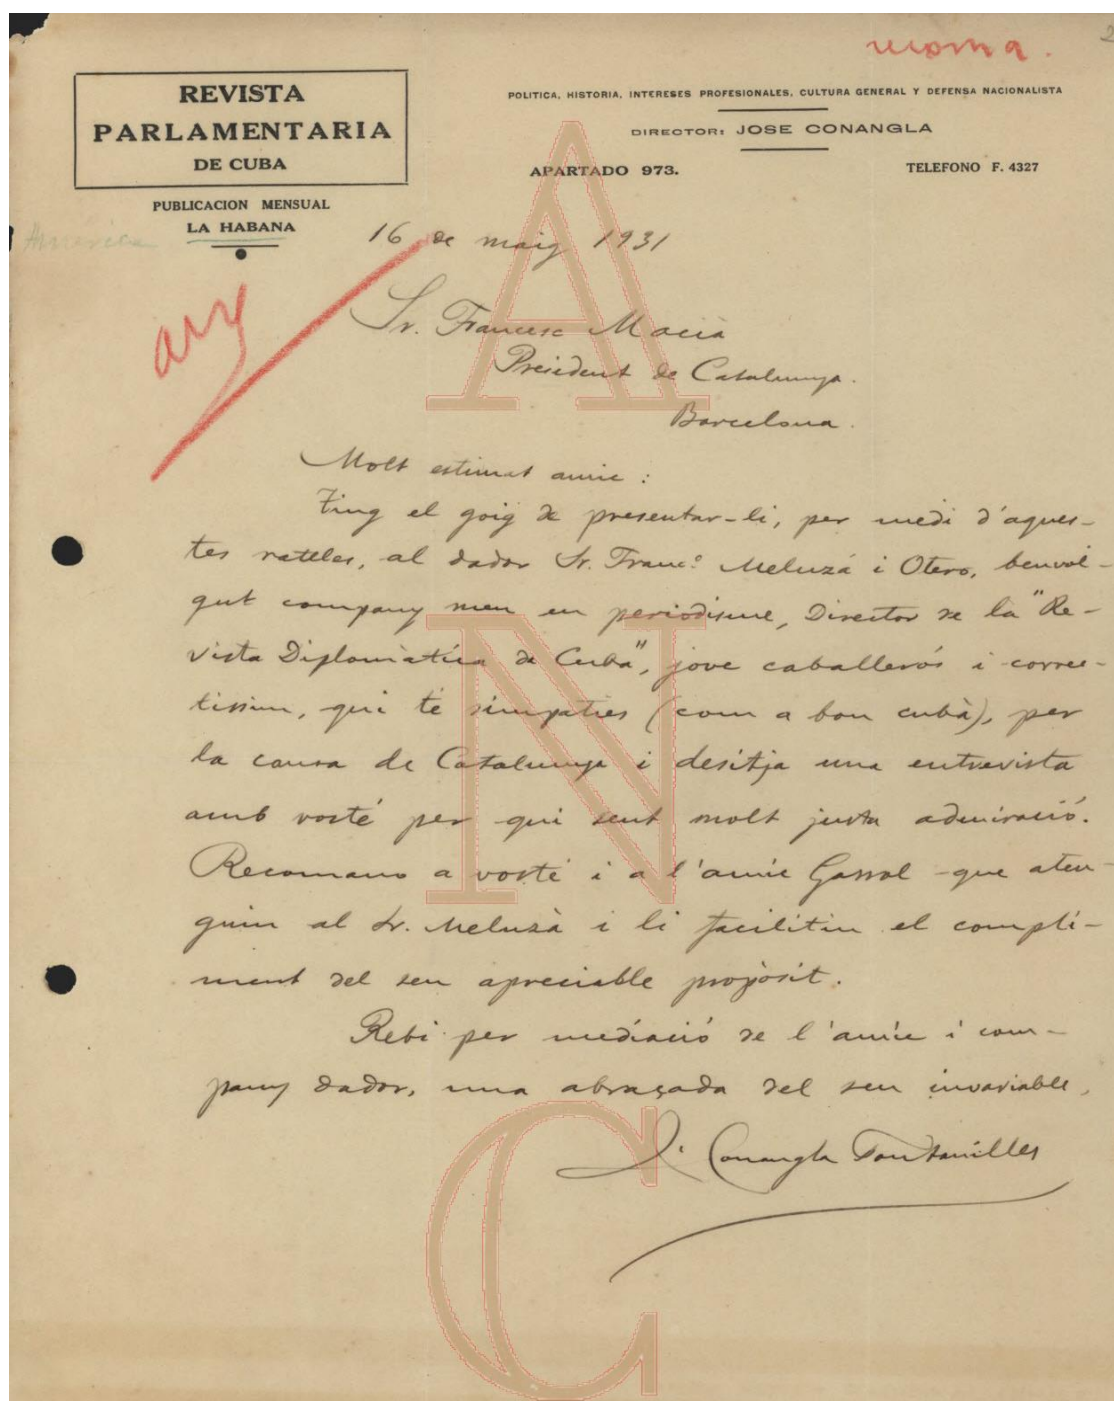 2
REVISTA
PARLAMENTARIA
DE CUBA
PUBLICACION MENSUAL
LA HABANA
POLITICA, HISTORIA, INTERESES PROFESIONALES, CULTURA GENERAL Y DEFENSA NACIONALISTA
DIRECTOR: JOSE CONANGLA
APARTADO 973.
TELEFONO F. 4327
America
16 de maig 1931
Sr. Francesc Macià
President de Catalunya.
Barcelona.
Molt estimat amic:
Ting el goig de presentar-li, per medi d'aques-
tes ratelles, al dador Sr. Franc.º Meluzá i Otero, benvol-
gut company meu en periodisme, Director de la "Re-
vista Diplomàtica de Cuba", jove caballerós i correc-
tissim, qui té simpaties (com a bon cubà), per
la causa de Catalunya i desitja una entrevista
amb vosté per qui sent molt justa admiració.
Recomano a vosté i a l'amic Gassol que aten-
guin al Sr. Meluzà i li facilitin el compli-
ment del seu apreciable propòsit.
Rebi per mediació de l'amic i com-
pany dador, una abraçada del seu invariable,
J. Conangla Fontanilles
ANC